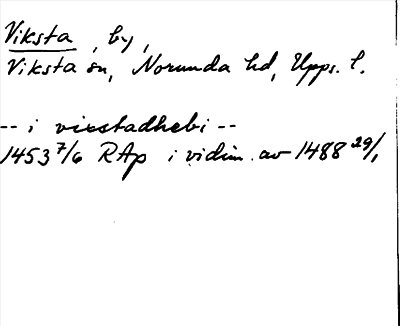 Viksta, by,
Viksta sn, Norunda hd, Upps. l.
-- i vixstadhebi --
1453 7/6 RAp i vidim. av 1488 29/1